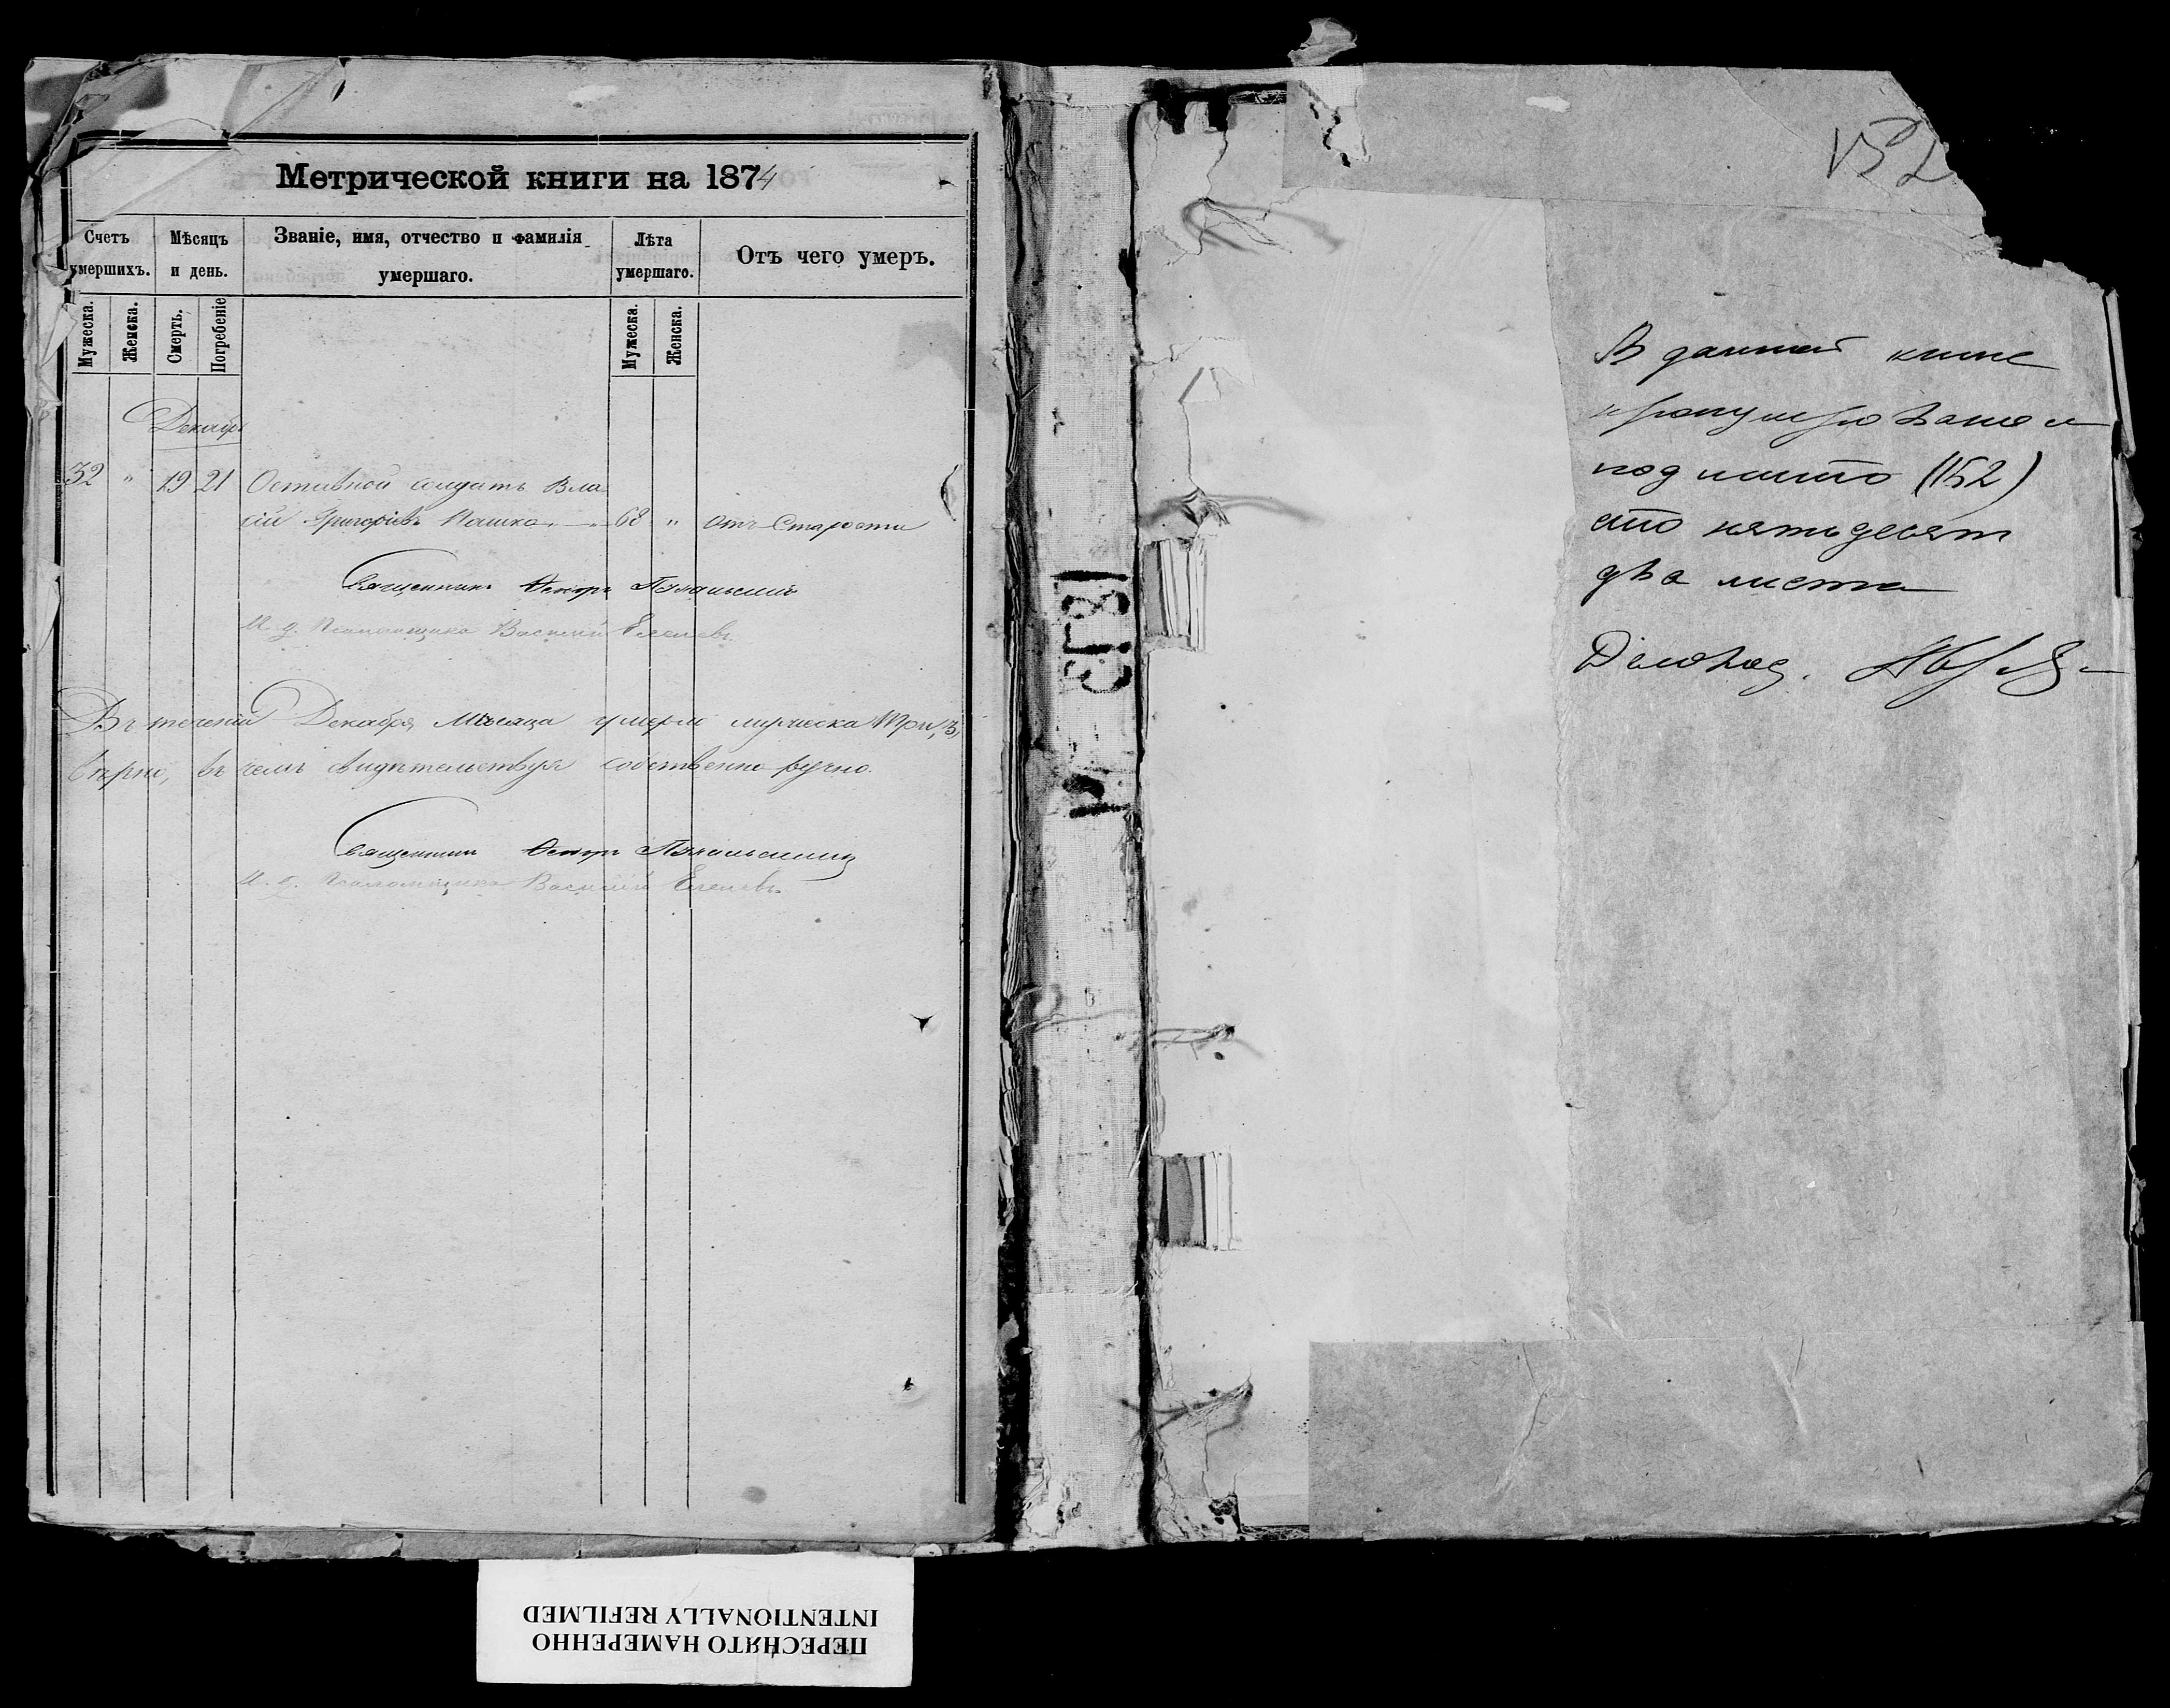 Метрической книги на 1874
Счетъ умершихъ.
Мѣсяцъ и день.
Званіе, имя, отчество и фамилія умершаго.
Лѣта умершаго.
Отъ чего умеръ.
Мужеска.
Женска.
Смерть.
Погребеніе
Мужеска.
Женска.
Декабрь
32 " 19 21 Оставной солдатъ Вла
сій Григоріевъ Пашко 68 " отъ Старости
Священникъ Петръ
И. д. Псаломщика Василій
Въ теченіи Декабря Мѣсяца умерло мужеска три, 3,
вѣрно, въ чемъ свидѣтельствуя собственно ручно.
Священникъ Петръ
И. д. Псаломщика Василій
1873
152
В данной книге
пронумеровано и
подшито (152)
сто пятьдесят
два листа
Деловод.
ПЕРЕСНЯТО НАМЕРЕННО
INTENTIONALLY REFILMED